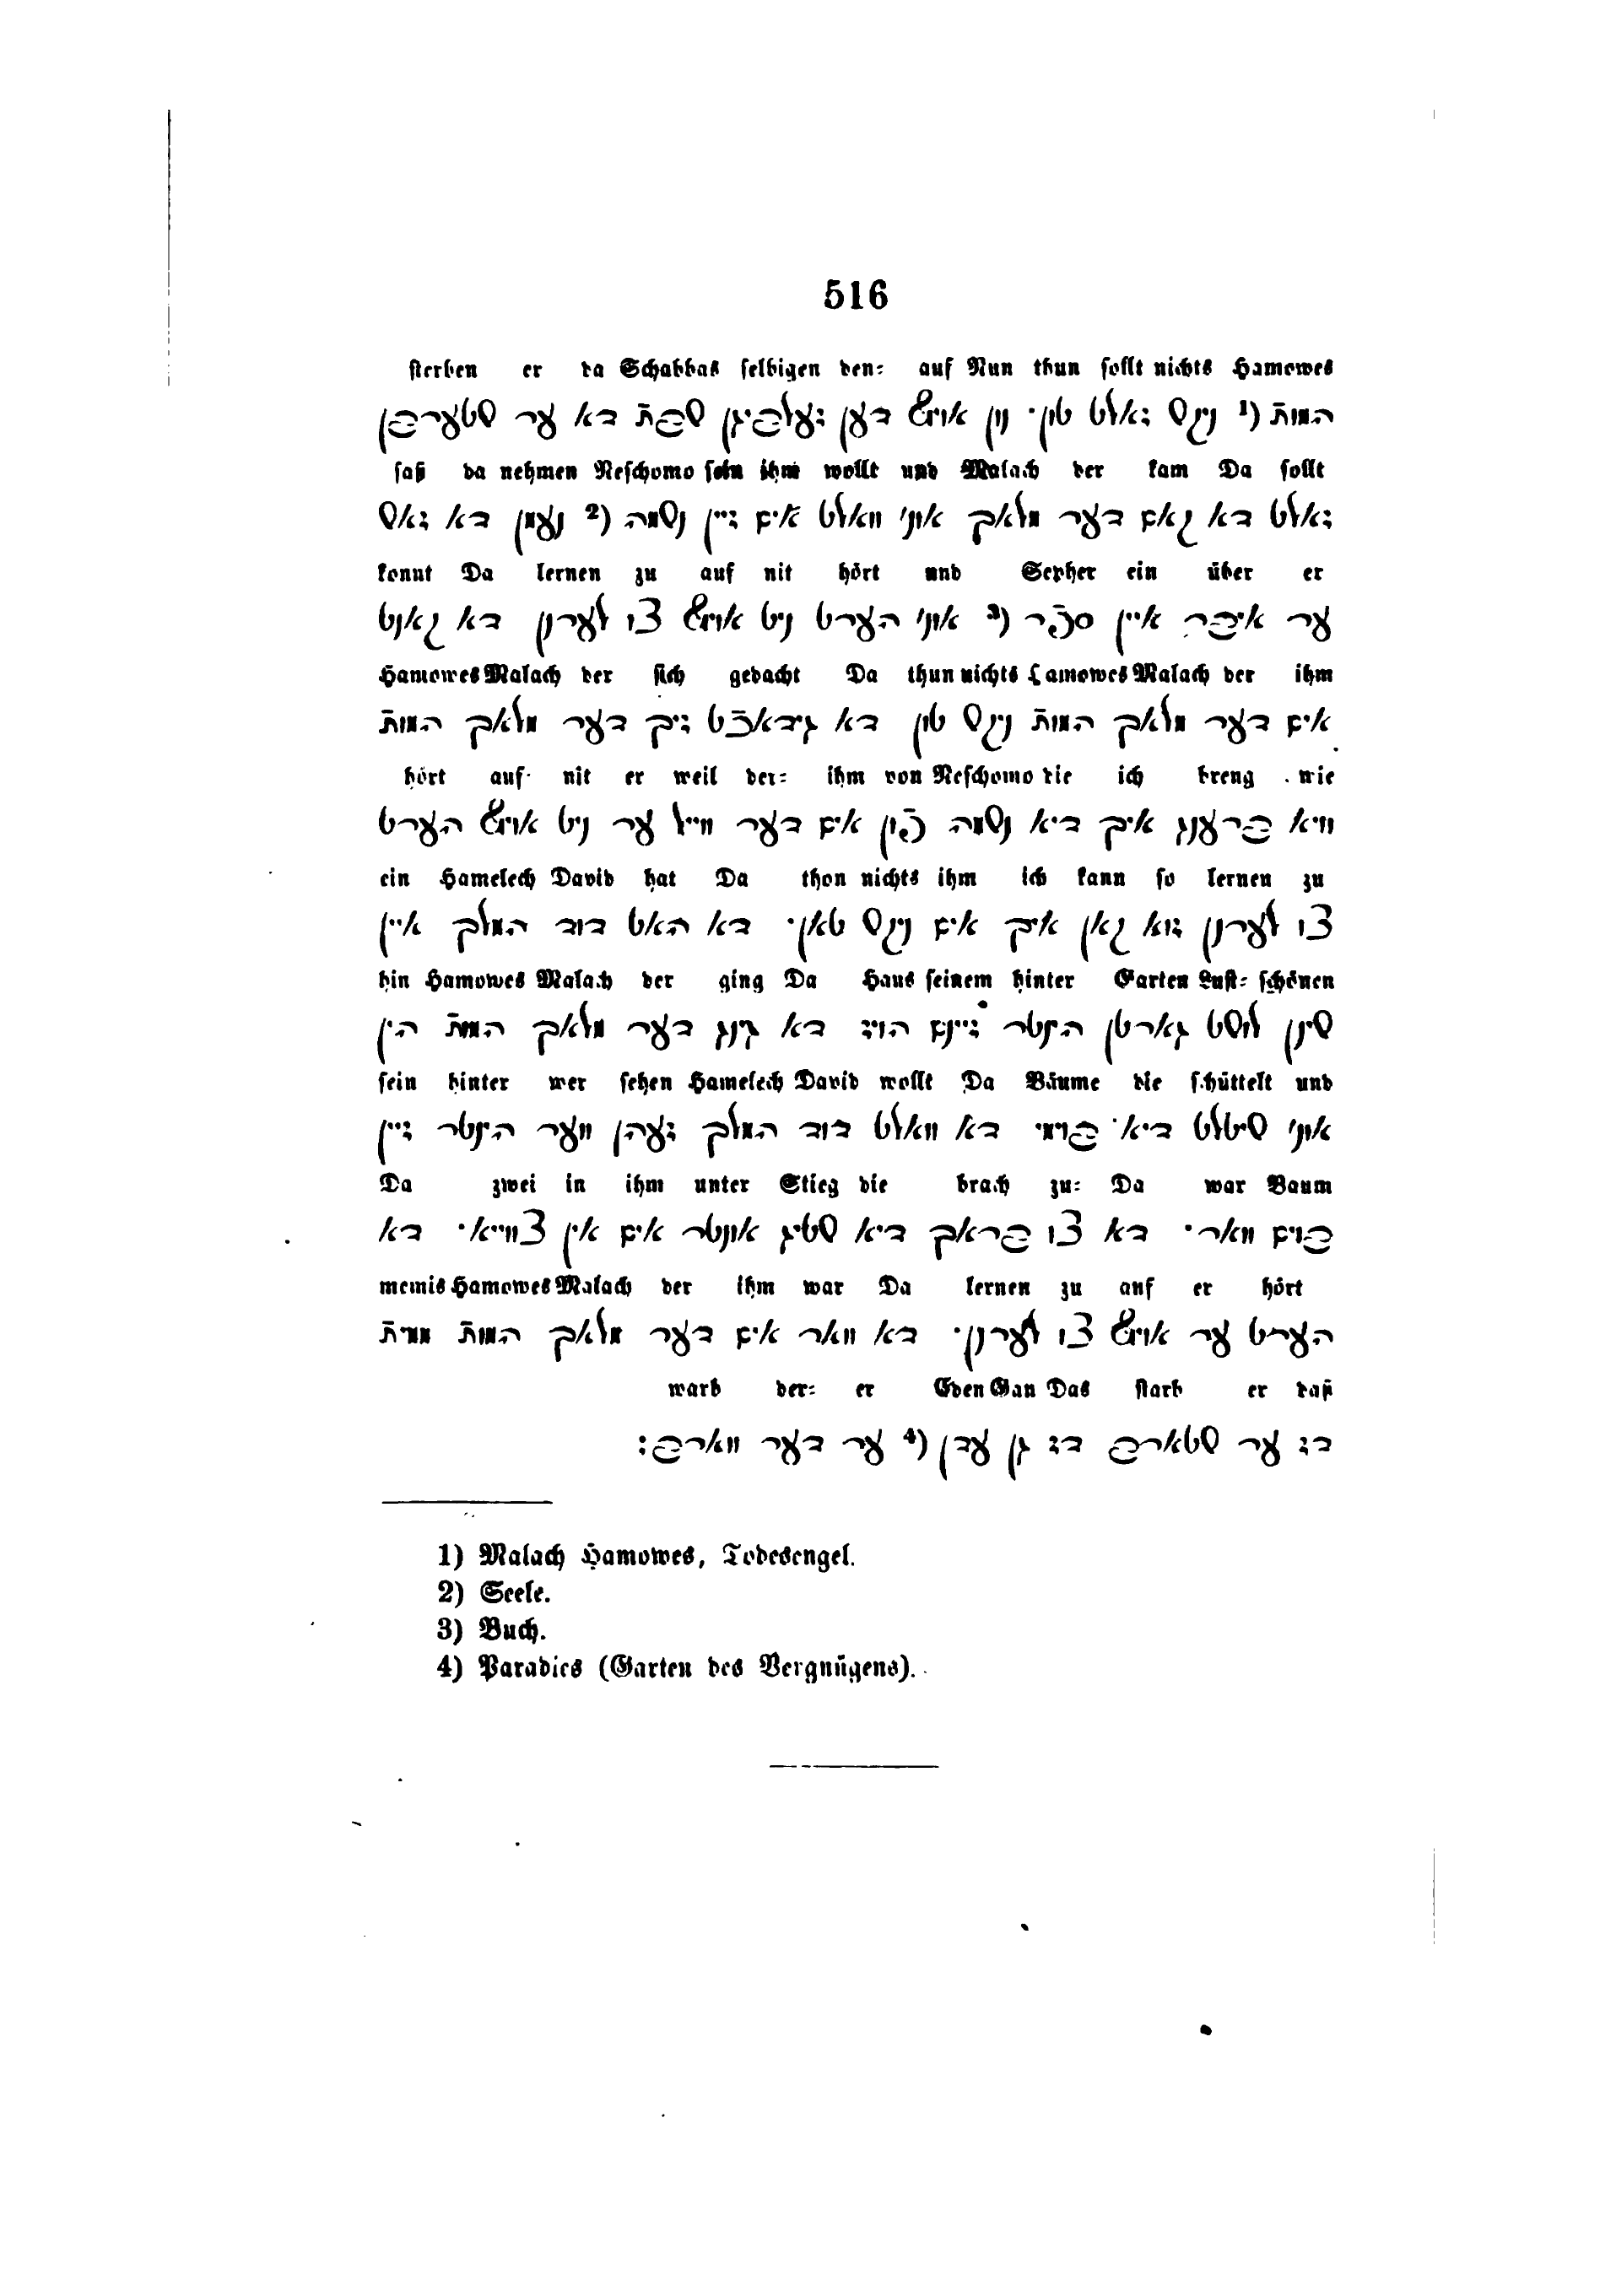 516
sterben er da Schabbas selbigen den= auf Nun thun sollt nichts Hamowes
המות (¹ ניקס זאלט טון׳ נון אויף דען זעלביגן שבת דא ער שטערבן
saß da nehmen Neschomo sein ihm wollt und Malach der kam Da sollt
זאלט דא קאם דער מלאך אוני וואלט אים זיין נשמה (² נעמן דא זאס
konnt Da lernen zu auf nit hört und Sepher ein über er
ער איבר איין ספר (³ אוני הערט ניט אויף צו לערנן דא קאנט
Hamowes Malach der sich gedacht Da thun nichts Hamowes Malach der ihm
אים דער מלאך המות ניקס טון דא גידאכט זיך דער מלאך המות
hört auf nit er weil der= ihm von Neschomo die ich breng wie
וויא ברענג איך דיא נשמה פון אים דער ווייל ער ניט אויף הערט
ein Hamelech David hat Da thon nichts ihm ich kann so lernen zu
צו לערנן זוא קאן איך אים ניקס טאן׳ דא האט דוד המלך איין
hin Hamowes Malach der ging Da Haus seinem hinter Garten Lust= schönen
שינן לושט גארטן הינטר זיינם הויז דא גינג דער מלאך המות הין
sein hinter wer sehen Hamelech David wollt Da Bäume die schüttelt und
אוני שיטלט דיא׳ בוימי דא וואלט דוד המלך זעהן ווער הינטר זיין
Da zwei in ihm unter Stieg die brach zu= Da war Baum
בוים וואר׳ דא צו בראך דיא שטיג אונטר אים אין צווייא׳ דא
memis Hamowes Malach der ihm war Da lernen zu auf er hört
הערט ער אויף צו לערנן׳ דא וואר אים דער מלאך המות ממית
warb der= er Eden Gan Das starb er daß
דז ער שטארב דז גן עדן (⁴ ער דער ווארב:
1) Malach Hamowes, Todesengel.
2) Seele.
3) Buch.
4) Paradies (Garten des Vergnügens).